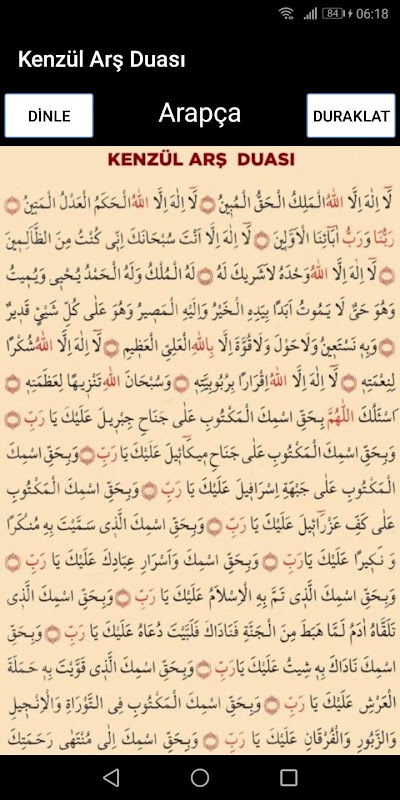 84 06:18
Kenzül Arş Duası
DİNLE
Arapça
DURAKLAT
KENZÜL ARŞ DUASI
لَٓا اِلٰهَ اِلَّا اللّٰهُ الْمَلِكُ الْحَقُّ الْمُب۪ينُ ۞ لَٓا اِلٰهَ اِلَّا اللّٰهُ الْحَكَمُ الْعَدْلُ الْمَت۪ينُ ۞
رَبُّنَا وَرَبُّ اٰبَٓائِنَا الْاَوَّل۪ينَ ۞ لَٓا اِلٰهَ اِلَّٓا اَنْتَ سُبْحَانَكَ اِنّ۪ى كُنْتُ مِنَ الظَّالِم۪ينَ
۞ لَٓا اِلٰهَ اِلَّا اللّٰهُ وَحْدَهُ لَاشَر۪يكَ لَهُ ۞ لَهُ الْمُلْكُ وَلَهُ الْحَمْدُ يُحْي۪ى وَيُم۪يتُ
وَهُوَ حَىٌّ لَا يَمُوتُ اَبَدًا بِيَدِهِ الْخَيْرُ وَاِلَيْهِ الْمَص۪يرُ وَهُوَ عَلٰى كُلِّ شَيْئٍ قَد۪يرٌ
۞ وَبِه۪ نَسْتَع۪ينُ وَلَاحَوْلَ وَلَاقُوَّةَ اِلَّا بِاللّٰهِ الْعَلِىِّ الْعَظ۪يمِ ۞ لَٓا اِلٰهَ اِلَّا اللّٰهُ شُكْرًا
لِنِعْمَتِه۪ ۞ لَٓا اِلٰهَ اِلَّا اللّٰهُ اِقْرَارًا بِرُبُوبِيَّتِه۪ ۞ وَسُبْحَانَ اللّٰهِ تَنْز۪يهًا لِعَظَمَتِه۪ ۞
اَسْئَلُكَ اللّٰهُمَّ بِحَقِّ اسْمِكَ الْمَكْتُوبِ عَلٰى جَنَاحِ جِبْر۪يلَ عَلَيْكَ يَا رَبِّ ۞
وَبِحَقِّ اسْمِكَ الْمَكْتُوبِ عَلٰى جَنَاحِ م۪يكَٓائ۪لَ عَلَيْكَ يَا رَبِّ ۞ وَبِحَقِّ اسْمِكَ
الْمَكْتُوبِ عَلٰى جَبْهَةِ اِسْرَاف۪يلَ عَلَيْكَ يَا رَبِّ ۞ وَبِحَقِّ اسْمِكَ الْمَكْتُوبِ
عَلٰى كَفِّ عَزْرَٓائ۪لَ عَلَيْكَ يَا رَبِّ ۞ وَبِحَقِّ اسْمِكَ الَّذ۪ى سَمَّيْتَ بِه۪ مُنْكَرًا
وَ نَك۪يرًا عَلَيْكَ يَارَبِّ ۞ وَبِحَقِّ اسْمِكَ وَاَسْرَارِ عِبَادِكَ عَلَيْكَ يَا رَبِّ ۞
وَبِحَقِّ اسْمِكَ الَّذ۪ى تَمَّ بِهِ الْاِسْلَامُ عَلَيْكَ يَا رَبِّ ۞ وَبِحَقِّ اسْمِكَ الَّذ۪ى
تَلَقَّاهُ اٰدَمُ لَمَّا هَبَطَ مِنَ الْجَنَّةِ فَنَادَاكَ فَلَبَّيْتَ دُعَاهُ عَلَيْكَ يَا رَبِّ ۞ وَبِحَقِّ
اسْمِكَ نَادَاكَ بِه۪ ش۪يتُ عَلَيْكَ يَارَبِّ ۞ وَبِحَقِّ اسْمِكَ الَّذ۪ى قَوَّيْتَ بِه۪ حَمَلَةَ
الْعَرْشِ عَلَيْكَ يَا رَبِّ ۞ وَبِحَقِّ اسْمِكَ الْمَكْتُوبِ فِى التَّوْرَاةِ وَالْاِنْج۪يلِ
وَالزَّبُورِ وَالْفُرْقَانِ عَلَيْكَ يَا رَبِّ ۞ وَبِحَقِّ اسْمِكَ اِلٰى مُنْتَهٰى رَحْمَتِكَ